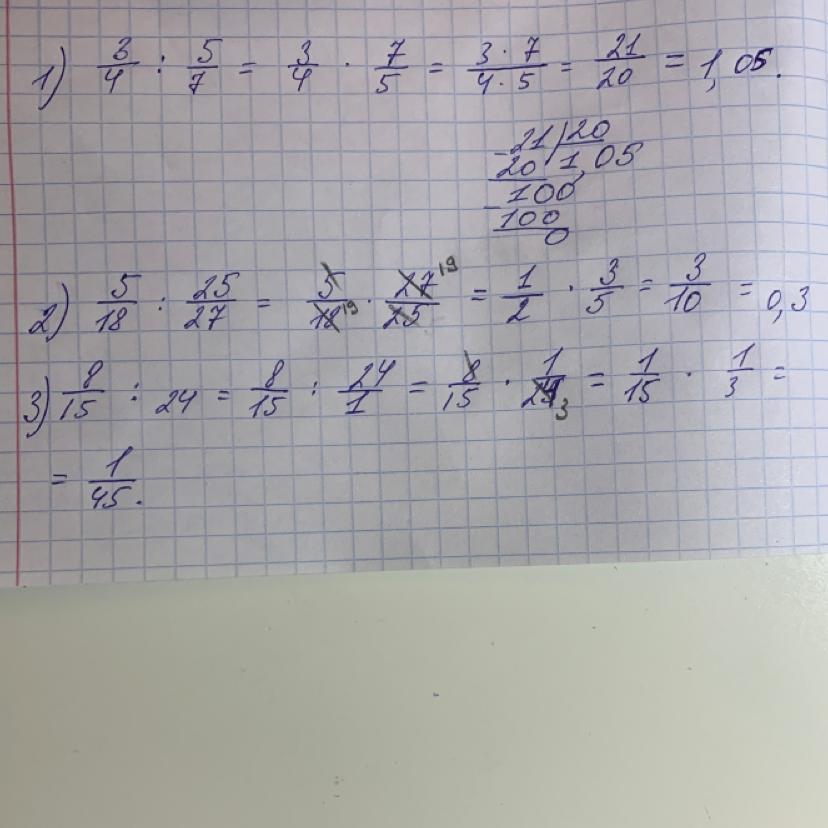 1) 3/4 : 5/7 = 3/4 · 7/5 = 3·7/4·5 = 21/20 = 1,05.
-21 | 20
20 1,05
-100
100
0
2) 5/18 : 25/27 = 5/18 |9 · 27/25 |9 = 1/2 · 3/5 = 3/10 = 0,3
3) 8/15 : 24 = 8/15 : 24/1 = 8/15 · 1/24 3 = 1/15 · 1/3 =
= 1/45.